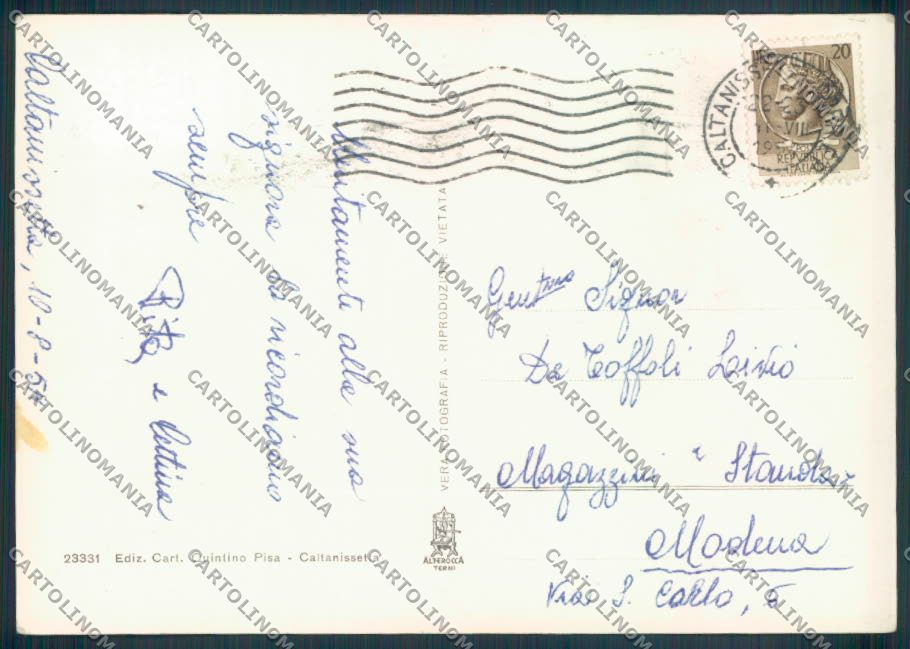 Caltanissetta, 10-8-57
Unitamente alla sua
signora la ricordiamo
sempre
Rita, e Cettina
VERA FOTOGRAFIA - RIPRODUZIONE VIETATA
23331 Ediz. Cart. Quintino Pisa - Caltanissetta
ALTEROCCA
TERNI
CALTANISSETTA
20
REPUBBLICA
ITALIANA
Gent.mo Signor
De Toffoli Livio
Magazzini "Standa"
Modena
Via S. Carlo, 6
CARTOLINOMANIA